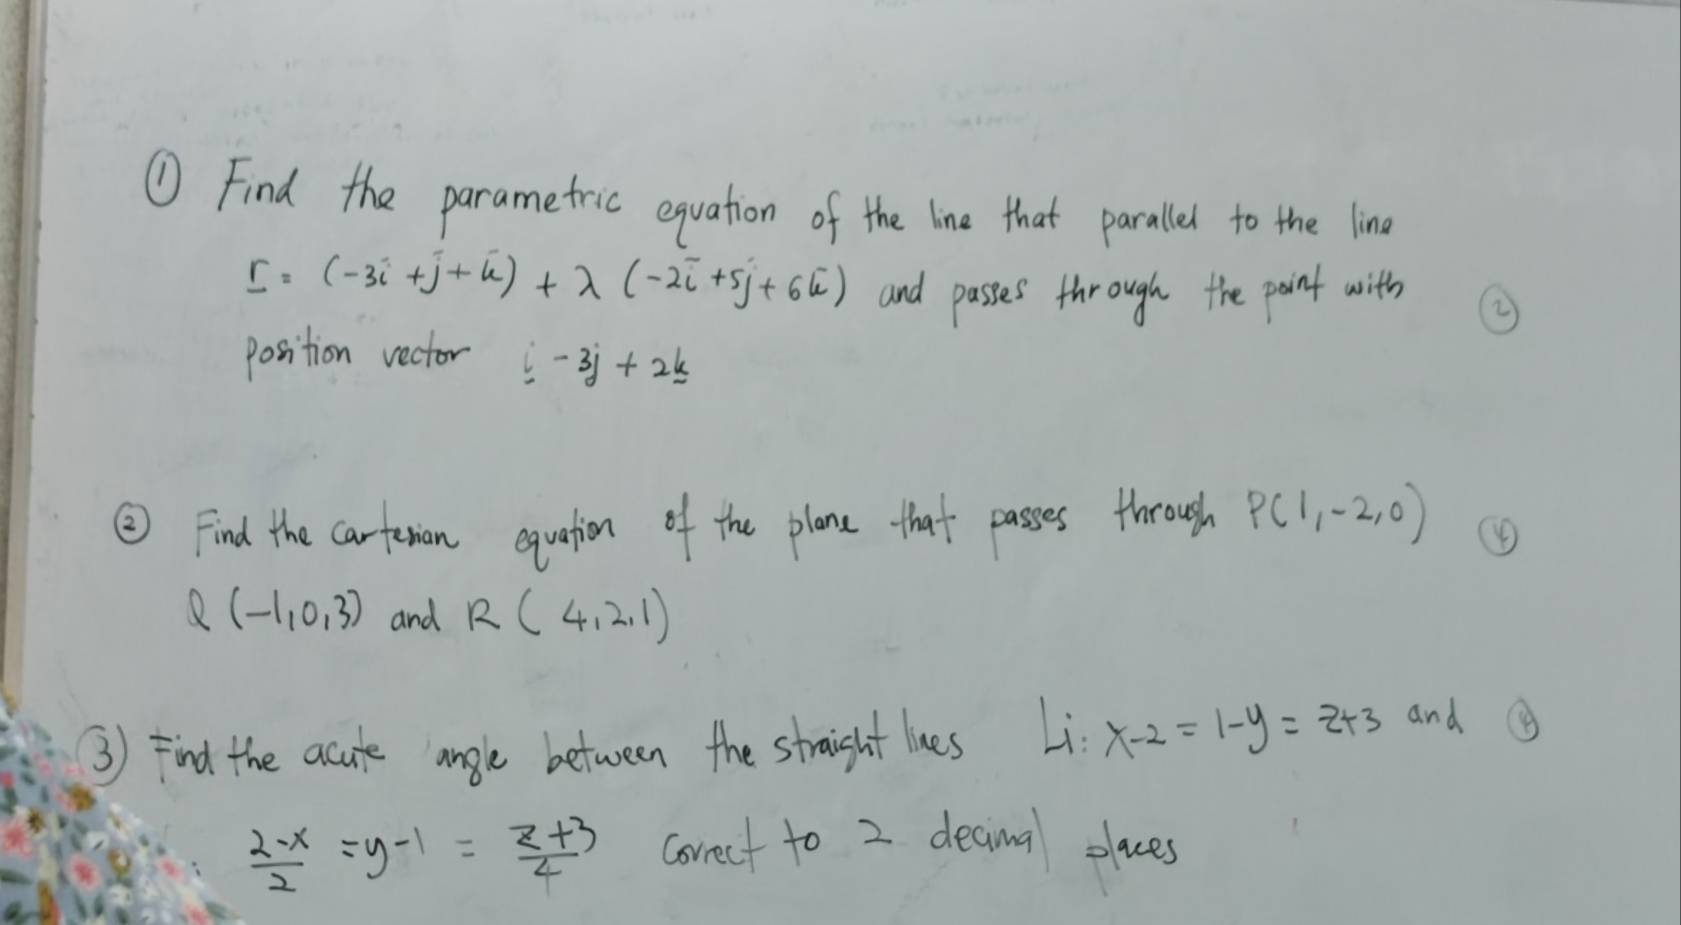 ① Find the parametric equation of the line that parallel to the line
r = (-3i + j + k) + λ (-2i + 5j + 6k) and passes through the point with ②
position vector i - 3j + 2k
② Find the cartesian equation of the plane that passes through P(1,-2,0) ④
Q (-1,0,3) and R ( 4,2,1)
③ Find the acute angle between the straight lines L1: x-2 = 1-y = z+3 and ④
: 2-x/2 = y-1 = z+3/4 correct to 2 decimal places